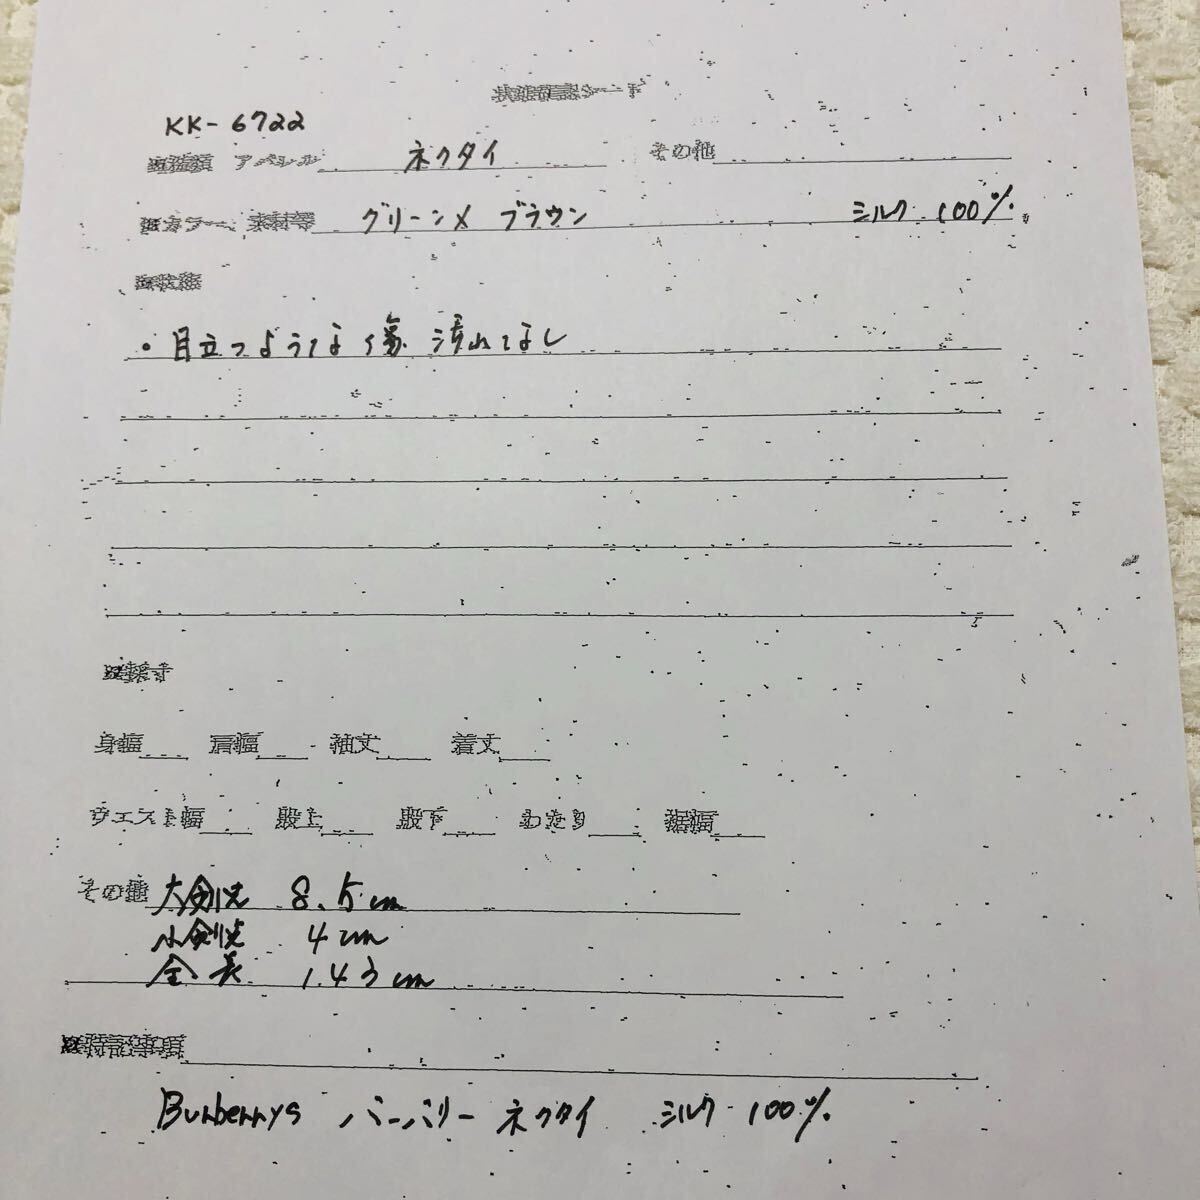 状態確認シート
KK-6722
アパレル ネクタイ その他
カラー、素材等 グリーン× ブラウン シルク 100%
・目立つような傷 汚れなし
身幅 肩幅 袖丈 着丈
ウエスト幅 股上 股下 わたり 裾幅
その他 大剣先 8.5cm
小剣先 4cm
全長 143cm
※特記事項
Burberrys バーバリー ネクタイ シルク 100%